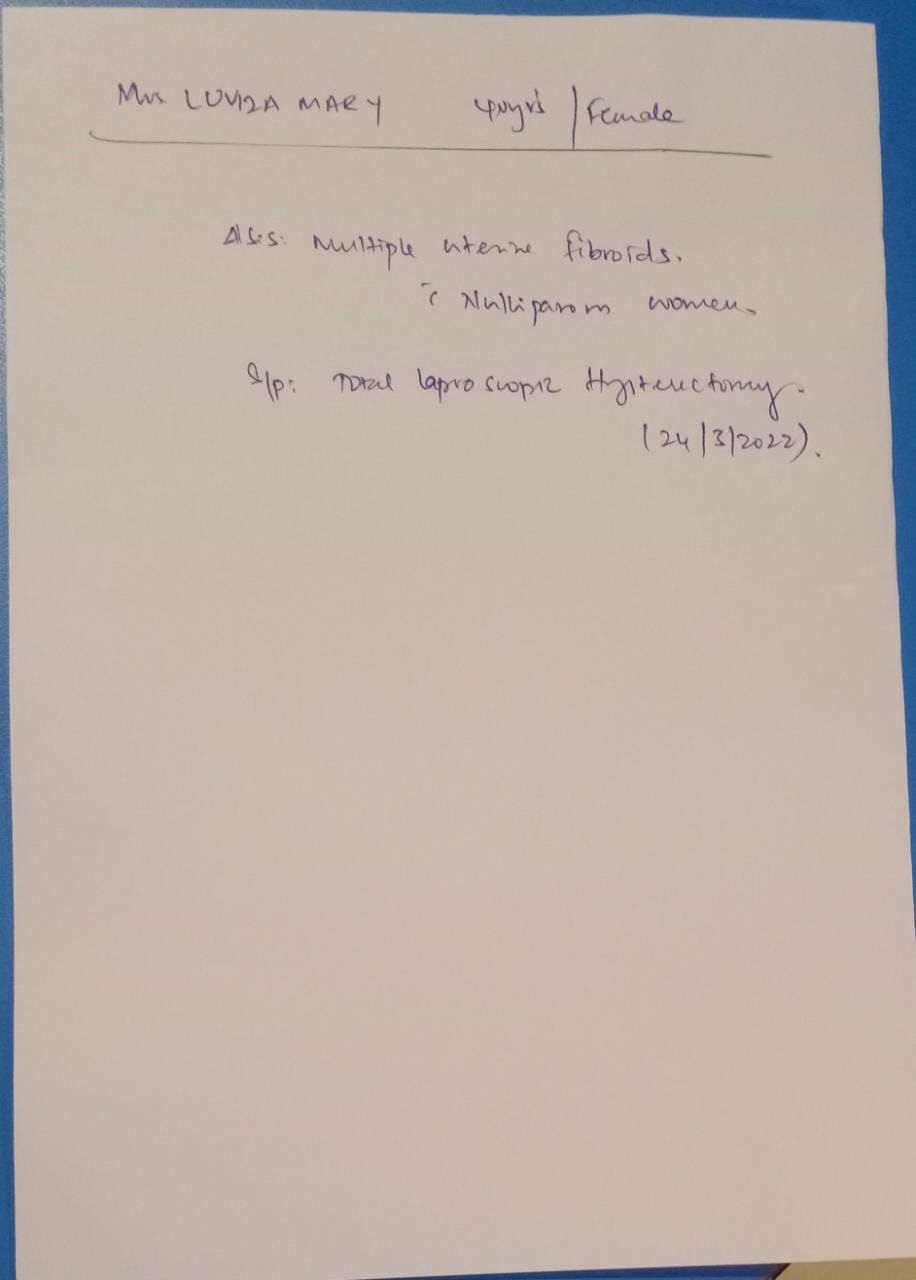 Mrs LUVIZA MARY 44yrs / Female
Δsis: Multiple uterine fibroids.
c̄ Nulliparous women.
S/p: Total laproscopic Hysterectomy.
(24/3/2022).